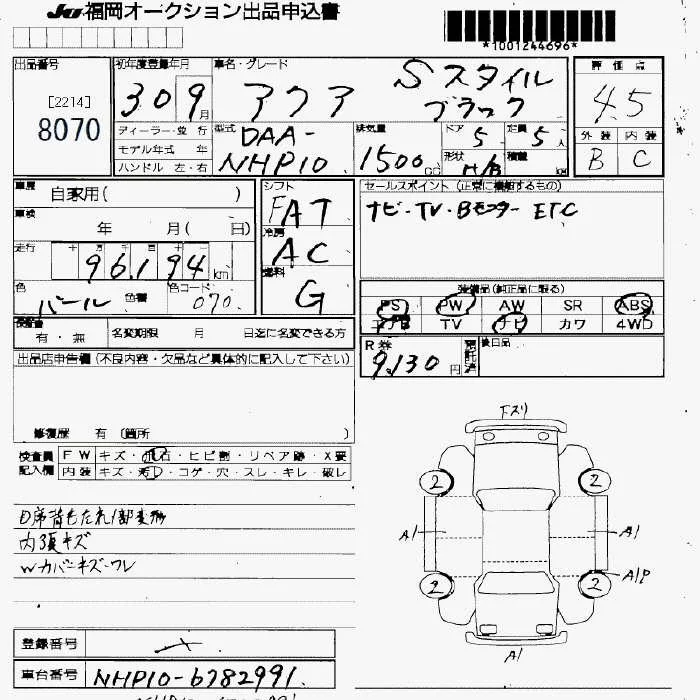 JU福岡オークション出品申込書
*1001244696*
出品番号
[2214]
8070
初年度登録年月
30 9月
車名・グレード
アクア Sスタイル
ブラック
評価点
4.5
外装 内装
B C
ディーラー・並行
モデル年式 年
ハンドル 左・右
型式
DAA-
NHP10
排気量
1500cc
ドア 5
定員 5人
形状 H/B
積載 kg
車歴 自家用( )
車検 年 月( 日)
走行 十 万 千 百 十
96,194km
色 パール 色替
色コード 070
シフト FAT
冷房 AC
燃料 G
セールスポイント (正常に機能するもの)
ナビ・TV・Bモニター ETC
装備品(純正品に限る)
PS PW AW SR ABS
エアB TV ナビ カワ 4WD
有・無 名変期限 月 日迄に名変できる方
R券 9,130円
預託済
後日品
出品店申告欄(不良内容・欠品など具体的に記入して下さい)
修復歴 有 (箇所 )
検査員 FW キズ・飛石・ヒビ割・リペア跡・X要
記入欄 内装 キズ・汚・コゲ・穴・スレ・キレ・破レ
D席背もたれ1部変形
内張キズ
Wカバーキズ・ワレ
下スリ
2 2
A1 A1
2 2 A1P
A1
登録番号
車台番号 NHP10-6782991